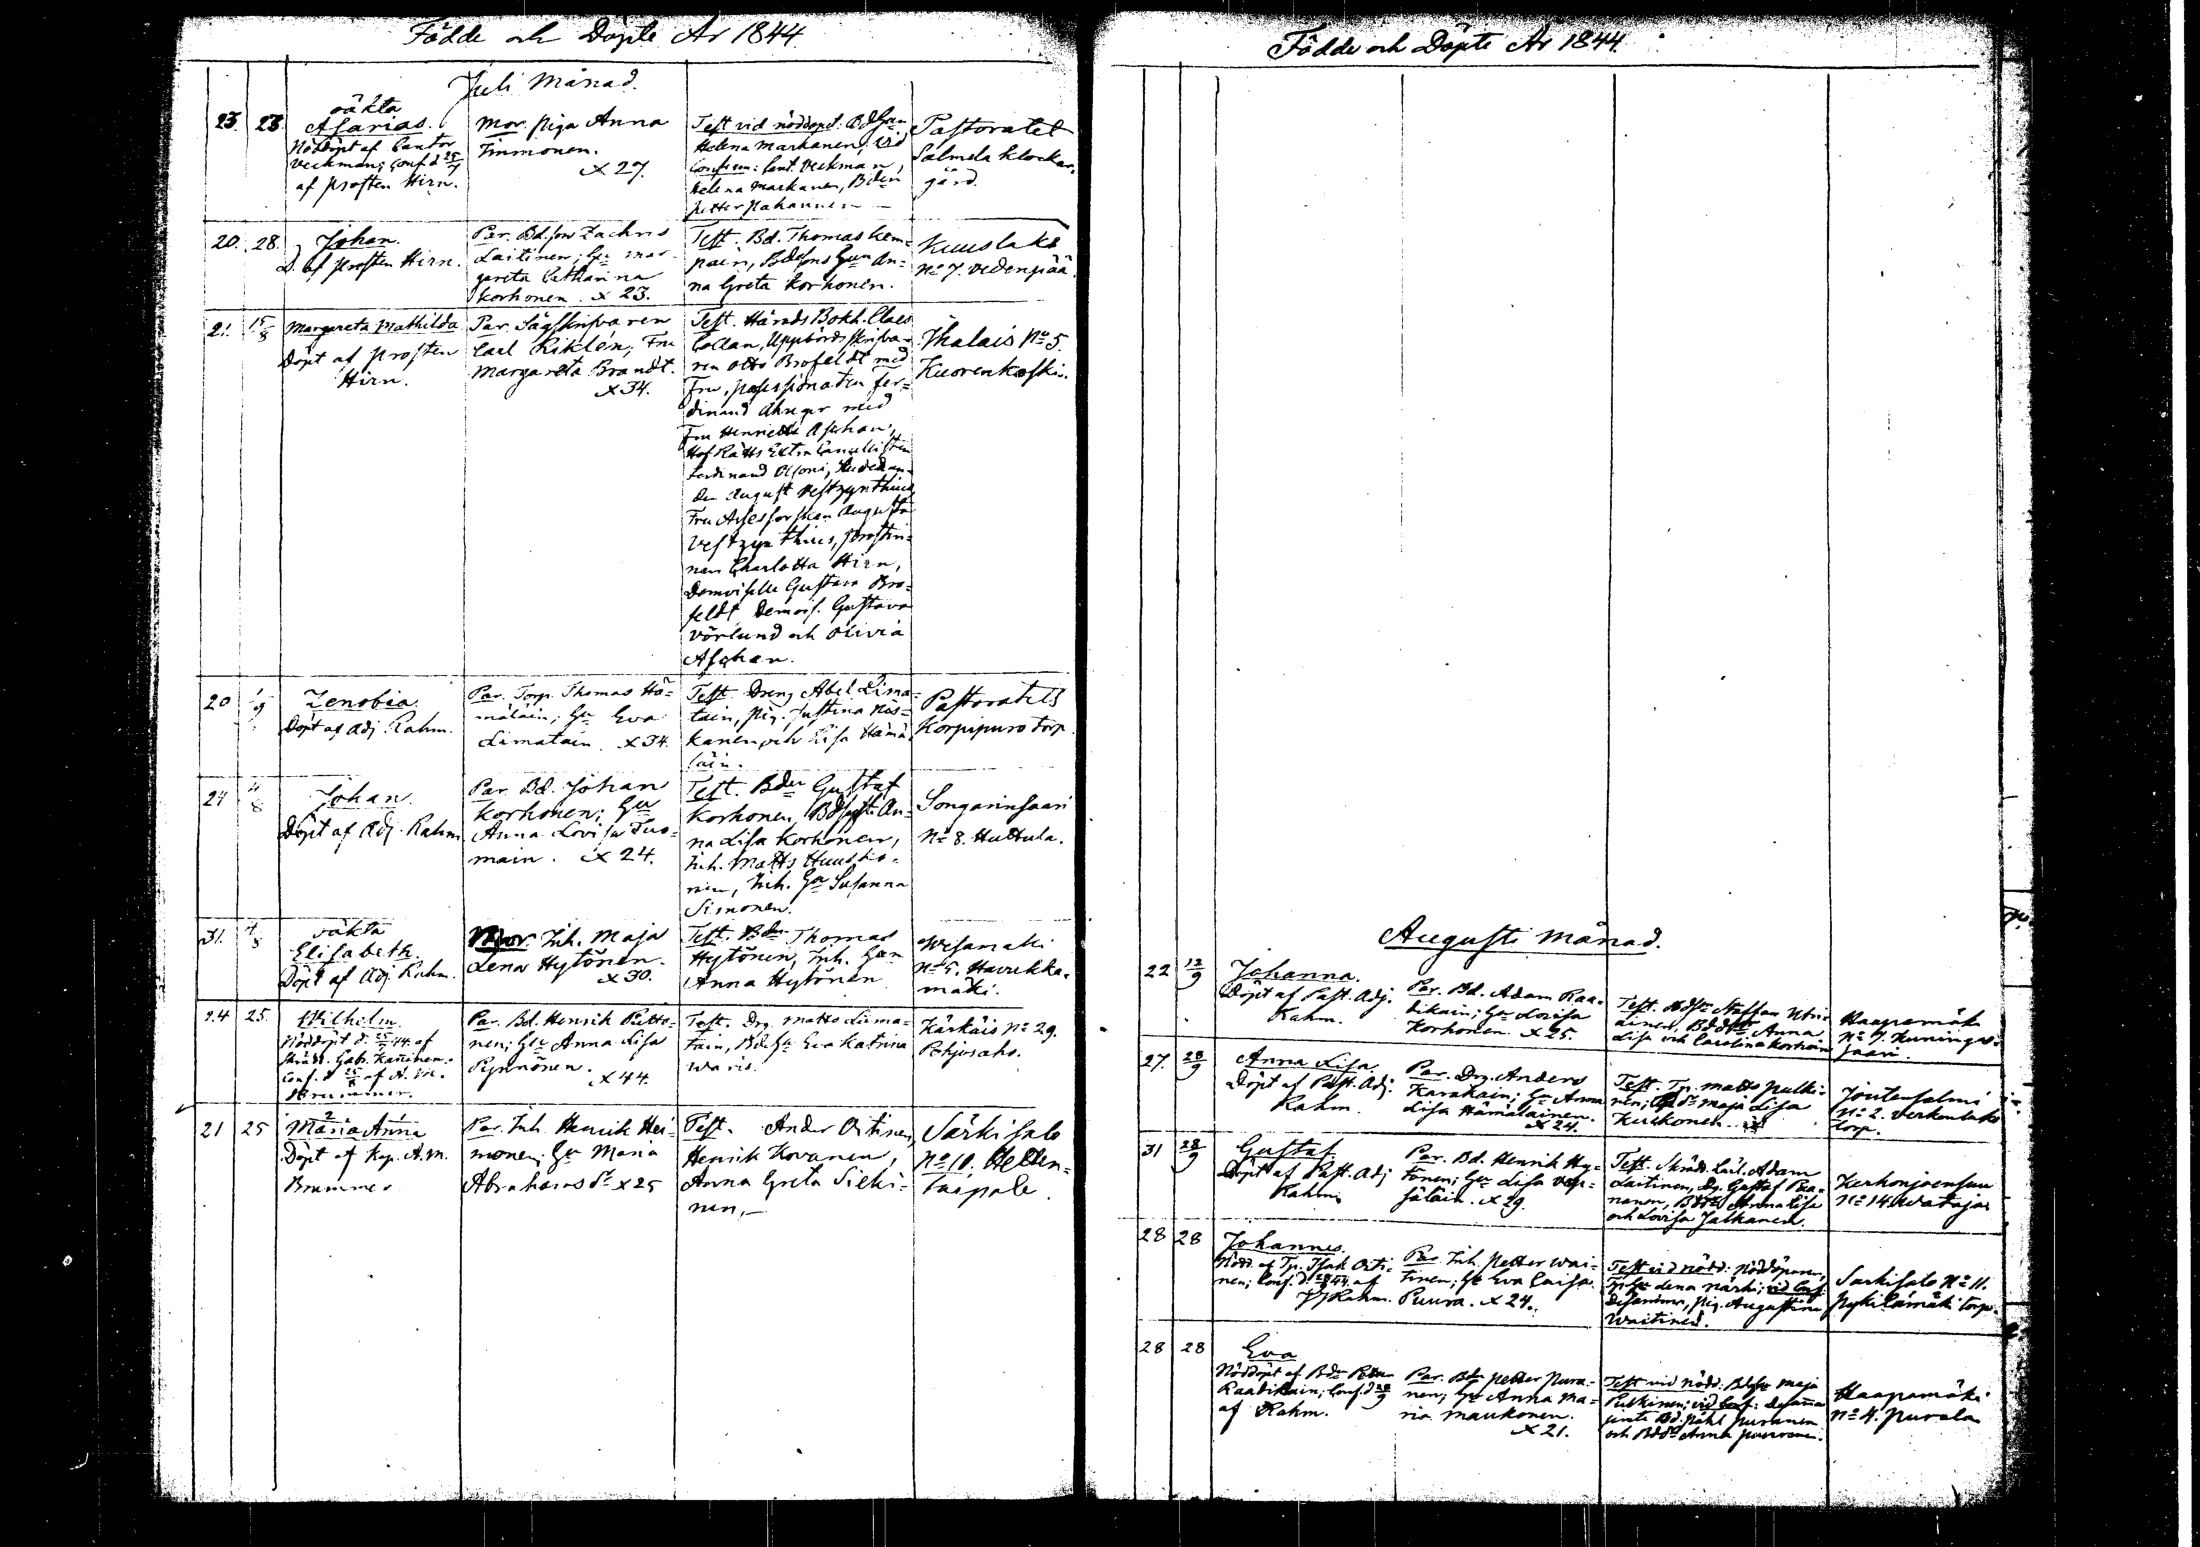 Födde och Döpte År 1844
Juli Månad.
23. 23.
oäkta
Asarias.
Nöddöpt af Cantor
Veckman; Conf. d 25/7
af prosten Hirn.
Mor. piga Anna
Timmonen.
x 27.
Test vid nöddopet. Bd Gun
Helena Markanen; vid
Confirm: Cant. Veckman,
Helena Markanen, Bden
petter pakarinen
Pastoratet
Salmela klockar-
gård.
20. 28.
Johan.
D. af prosten Hirn.
Par. Bd. son Zachris
Laitinen; Gu mar-
gareta Catharina
Korhonen. x 23.
Test. Bd. Thomas Kem-
pain, Bdsons Gun An-
na Greta Korhonen.
Kuuslaks
No 7. vedenpää.
21. 15/8
Margareta Mathilda
Döpt af prosten
Hirn.
Par. Sågskrifvaren
Carl Riklén; Fru
Margareta Brandt.
x 34.
Test. Härads Bokh. Claes
Collan, Uppbördsskrifva-
ren Otto Brofeldt med
Fru, possessionaten Fer-
dinand Ahnger med
Fru Henriette Aschan,
Hof Rätts Extra Cancellisten
Ferdinand Olsoni, Studeran-
den August Vestzynthius
Fru Assessorskan Augusta
Vestzynthius, prostin-
nan Charlotta Hirn,
Demoiselle Gustava Bro-
feldt Demois. Gustava
Vörlund och Olivia
Aschan.
Ihalais No 5.
Kuorenkoski.
20 1/9
Zenobia.
Döpt af Adj. Rahm.
Par. Torp. Thomas Hä-
mäläin; Gu Eva
Limatain. x 34.
Test. Dreng Abel Lima-
tain, pig. Justina Kos-
kanen och Lisa Hämä-
läin.
Pastoratets
Korpipuro torp
24 4/8
Johan
Döpt af Adj. Rahm
Par. Bd. Johan
Korhonen; Gu
Anna Lovisa Tuo-
main. x 24.
Test. Bden Gustaf
Korhonen, Bdsgst. An-
na Lisa Korhonen,
Inh. Matts Huusko-
nen, Inh. Gu Susanna
Simonen.
Songarinsaari
No 8. Huttula.
31. 4/8
oäkta
Elisabeth.
Döpt af Adj. Rahm.
Mor. Inh. Maja
Lena Hytönen.
x 30.
Test. Bden Thomas
Hytönen, Inh. Gun
Anna Hytönen
Wesamäki
No 5. Havukka-
mäki.
24 25.
Wilhelm
Nöddöpt d. 25/7 44. af
skrädd. Gab. Kauhan.
Conf. d 25/8 af A. M.
Brummer.
Par. Bd. Henrik Putto-
nen; Gu Anna Lisa
Pynnönen.
x 44.
Test. Drg. Matts Lima-
tain, Bds Gu Eva Katrina
Waris.
Kärkäis No 29.
Pohjosaho.
21 25
Maria Anna
Döpt af Kap. A. M.
Brummer
Par. Inh. Henrik Hei-
monen, Gu Maria
Abrahams dr x 25
Test. Ander Oitinen,
Henrik Kovanen,
Anna Greta Sieki-
nen,
Särkisalo
No 10. Hellen-
taipale.
Födde och Döpte År 1844
Augusti Månad.
22 12/9
Johanna.
Döpt af Past. Adj.
Rahm.
Par. Bd. Adam Raa-
tikain; Gu Lovisa
Korhonen. x 25.
Test. Bdsn Staffan
ainen, Bddr Anna
Lisa och Carolina Korhonen
Haapamäki
No 7. Kuningas-
saari.
27. 28/9
Anna Lisa
Döpt af Past. Adj.
Rahm.
Par. Drg. Anders
Karakain; Gu Anna
Lisa Hämäläinen.
x 24.
Test. Tp. Matts pulki-
nen; dr Maja Lisa
Kukkonen.
Joutensalmi
No 2. Verkonlaks
torp.
31 28/9
Gustaf.
Döpt af Past. Adj
Rahm.
Par. Bd. Henrik Hy-
tönen; Gu Lisa Vep-
säläin. x 29.
Test. Skrädd. Lärl. Adam
Laitinen, Dg. Gustaf Paa-
nanen, Bddr Anna Lisa
och Lovisa Jalkanen.
Kerkonjoensuu
No 14. Wataja
28 28
Johannes.
Nödd. af Tp. Isak Oiti-
nen; Conf. d 28/9 44. af
Rahm.
Par. Inh. petter Wai-
tinen; Gu Eva Caisa
Puura. x 24.
Test vid nödd: Nöddöparen,
Tp. Gu Lena Närhi; vid Conf:
Desamma, pig. Augustina
Waitinen.
Särkisalo No 11.
pykilämäki torp.
28 28
Eva
Nöddöpt af Bden petter
Raatikain; Conf. d 28/9
af Rahm.
Par. Bd. petter Pura-
nen; Gu Anna Ma-
ria Maukonen.
x 21.
Test vid nödd: Bds Gu Maja
Pulkinen; vid Conf: Desamma
jemte Bd. påhl Puranen
och Bddr Anna Puranen.
Haapamäki
No 4. purola